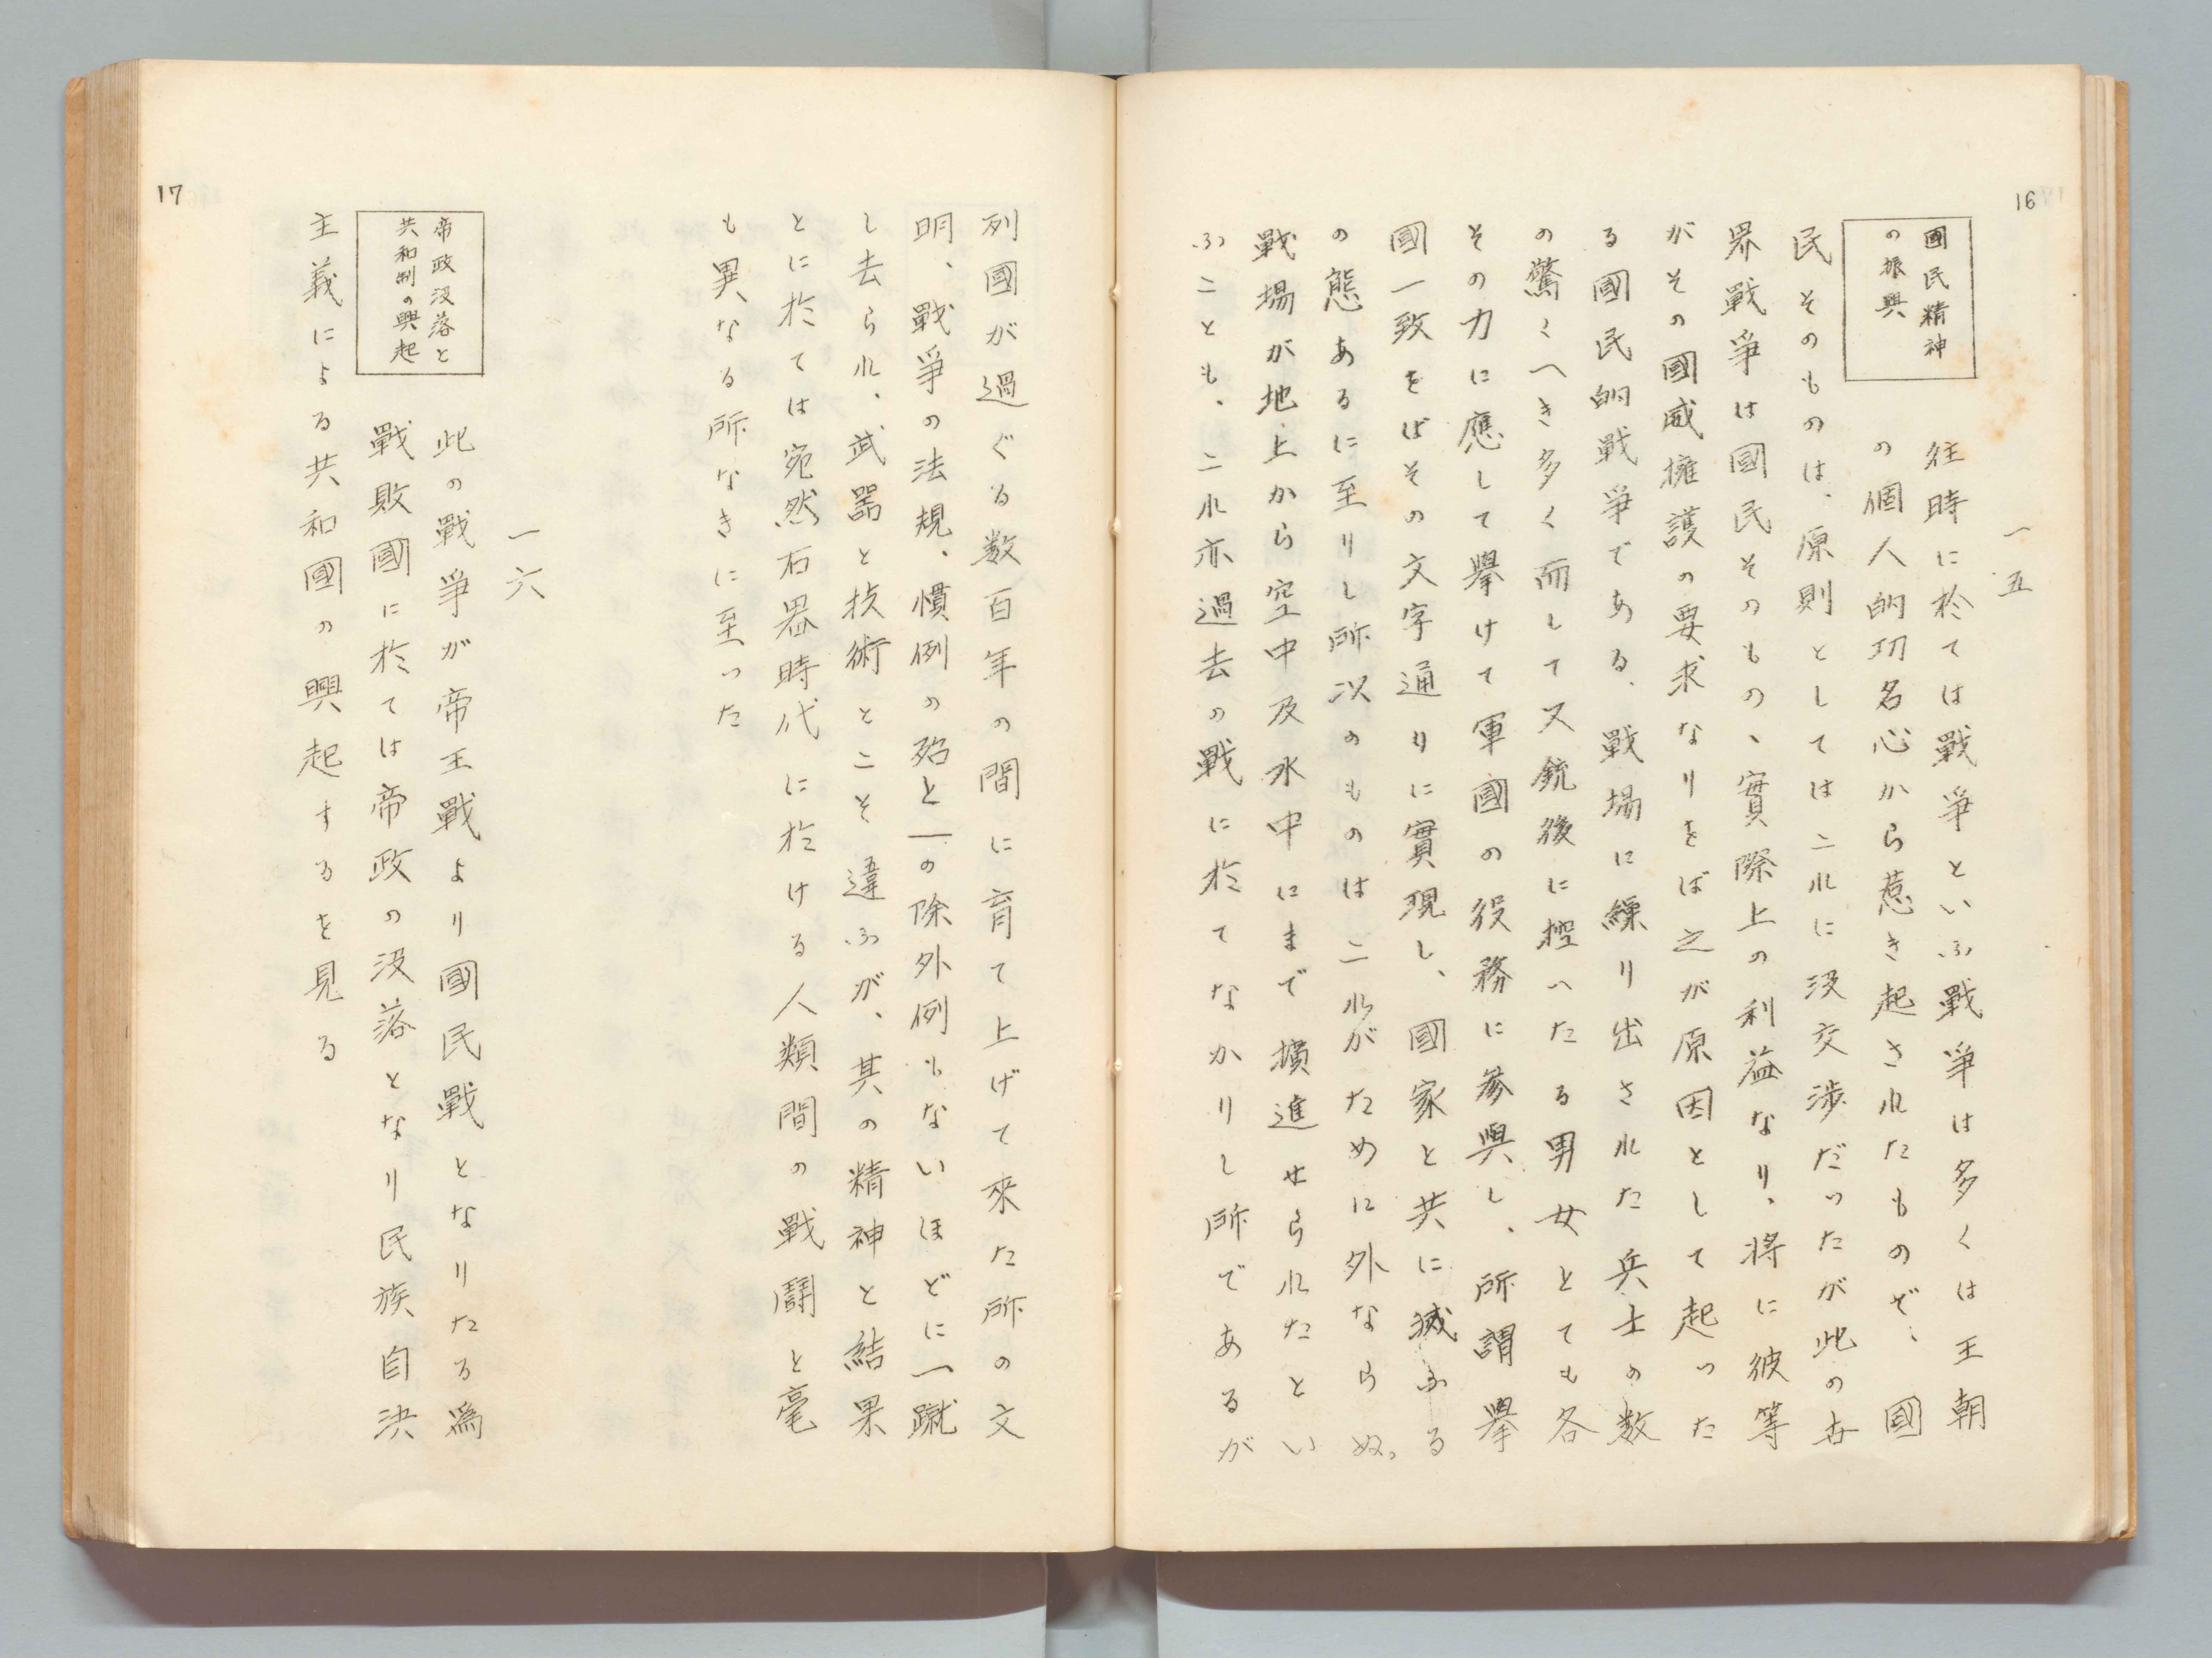 16
一五
國民精神
の振興
往時に於ては戰爭といふ戰爭は多くは王朝
の個人的功名心から惹き起されたものぞ、國
民そのものは、原則としてはこれに没交渉だったが此の世
界戰爭は國民そのもの、實際上の利益なり、将に彼等
がその國威擁護の要求なりをば之が原因として起った
る國民的戰爭である、戰場に繰り出された兵士の数
の驚くへき多く而して又銃後に控へたる男女とても各
その力に應して擧けて軍國の役務に參與し、所謂擧
國一致をばその文字通りに實現し、國家と共に滅ふる
の態あるに至りし所以のものはこれがために外ならぬ。
戰場が地上から空中及水中にまで擴進せられたとい
ふことも、これ亦過去の戰に於てなかりし所であるが
17
列國が過ぐる数百年の間に育て上げて來た所の文
明、戰爭の法規、慣例の殆と一の除外例もないほどに一蹴
し去られ、武器と技術とこそ違ふが、其の精神と結果
とに於ては宛然石器時代に於ける人類間の戰鬪と毫
も異なる所なきに至った
一六
帝政没落と
共和制の興起
此の戰爭が帝王戰より國民戰となりたる爲
戰敗國に於ては帝政の没落となり民族自決
主義による共和國の興起するを見る